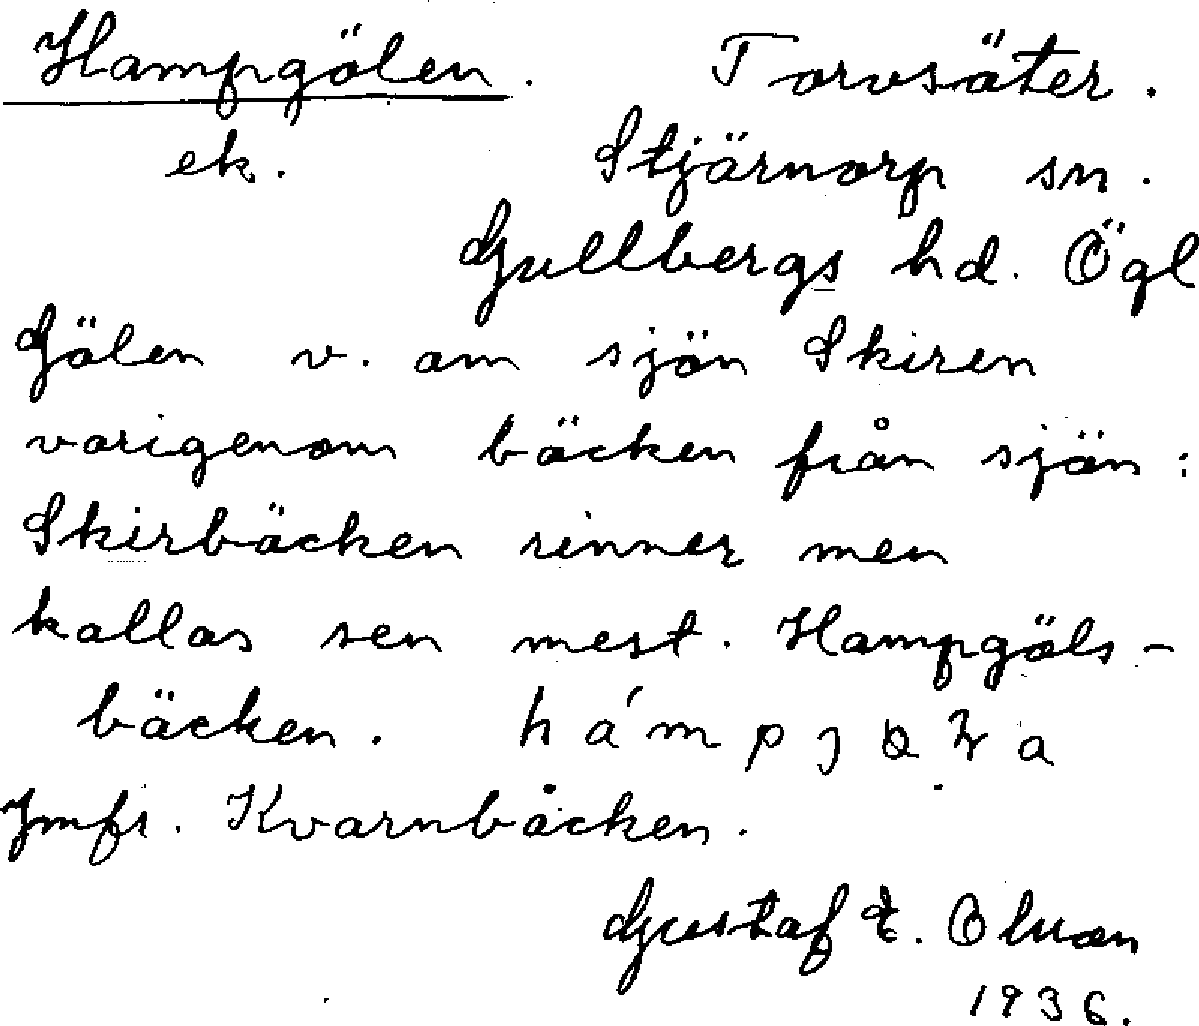 Hampgölen. Torvsäter.
ek. Stjärnorp sn.
Gullbergs hd. Ögl
Gölen v. om sjön Skiren
varigenom bäcken från sjön:
Skirbäcken rinner men
kallas sen mest. Hampgöls-
bäcken.
Jmfr. Kvarnbäcken.
Gustaf E.
1936.